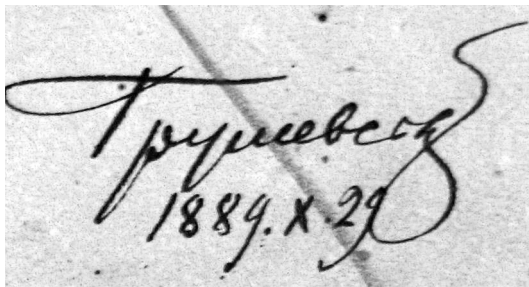 Грушевск
1889.X.29